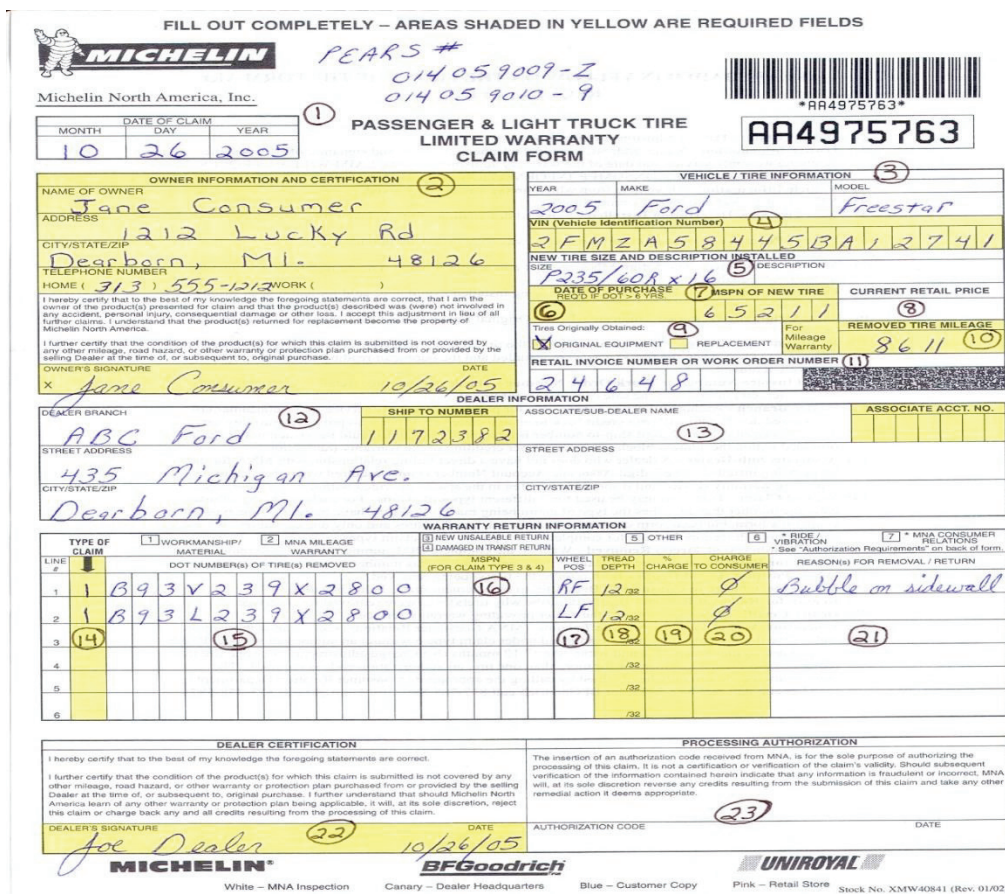 FILL OUT COMPLETELY – AREAS SHADED IN YELLOW ARE REQUIRED FIELDS
MICHELIN
PEARS #
014059009-Z
014059010-9
Michelin North America, Inc.
*AA4975763*
AA4975763
1
DATE OF CLAIM
MONTH DAY YEAR
10 26 2005
PASSENGER & LIGHT TRUCK TIRE
LIMITED WARRANTY
CLAIM FORM
OWNER INFORMATION AND CERTIFICATION 2
NAME OF OWNER
Jane Consumer
ADDRESS
1212 Lucky Rd
CITY/STATE/ZIP
Dearborn, MI. 48126
TELEPHONE NUMBER
HOME ( 313 ) 555-1212 WORK ( )
I hereby certify that to the best of my knowledge the foregoing statements are correct, that I am the
owner of the product(s) presented for claim and that the product(s) described was (were) not involved in
any accident, personal injury, consequential damage or other loss. I accept this adjustment in lieu of all
further claims. I understand that the product(s) returned for replacement become the property of
Michelin North America.
I further certify that the condition of the product(s) for which this claim is submitted is not covered by
any other mileage, road hazard, or other warranty or protection plan purchased from or provided by the
selling Dealer at the time of, or subsequent to, original purchase.
OWNER'S SIGNATURE DATE
X Jane Consumer 10/26/05
VEHICLE / TIRE INFORMATION 3
YEAR MAKE MODEL
2005 Ford Freestar
VIN (Vehicle Identification Number) 4
2FMZA58445BA12741
NEW TIRE SIZE AND DESCRIPTION INSTALLED
SIZE 5 DESCRIPTION
P235/60R x 16
DATE OF PURCHASE 7 MSPN OF NEW TIRE CURRENT RETAIL PRICE
REQ'D IF DOT > 6 YRS.
6 65211 8
Tires Originally Obtained: 9 For Mileage Warranty REMOVED TIRE MILEAGE
X ORIGINAL EQUIPMENT REPLACEMENT 8611 10
RETAIL INVOICE NUMBER OR WORK ORDER NUMBER 11
24648
DEALER INFORMATION
DEALER BRANCH 12 SHIP TO NUMBER
ABC Ford 1172382
STREET ADDRESS
435 Michigan Ave.
CITY/STATE/ZIP
Dearborn, MI. 48126
ASSOCIATE/SUB-DEALER NAME ASSOCIATE ACCT. NO.
13
STREET ADDRESS
CITY/STATE/ZIP
WARRANTY RETURN INFORMATION
TYPE OF CLAIM 1 WORKMANSHIP/MATERIAL 2 MNA MILEAGE WARRANTY 3 NEW UNSALEABLE RETURN 4 DAMAGED IN TRANSIT RETURN 5 OTHER 6 * RIDE / VIBRATION 7 * MNA CONSUMER RELATIONS
* See "Authorization Requirements" on back of form.
LINE # DOT NUMBER(S) OF TIRE(S) REMOVED MSPN (FOR CLAIM TYPE 3 & 4) WHEEL POS TREAD DEPTH % CHARGE CHARGE TO CONSUMER REASON(s) FOR REMOVAL / RETURN
1 1 B93V239X2800 16 RF 12/32 Ø Bubble on sidewall
2 1 B93L239X2800 LF 12/32 Ø
3 14 15 17 18 /32 19 20 21
4 /32
5 /32
6 /32
DEALER CERTIFICATION
I hereby certify that to the best of my knowledge the foregoing statements are correct.
I further certify that the condition of the product(s) for which this claim is submitted is not covered by any
other mileage, road hazard, or other warranty or protection plan purchased from or provided by the selling
Dealer at the time of, or subsequent to, original purchase. I further understand that should Michelin North
America learn of any other warranty or protection plan being applicable, it will, at its sole discretion, reject
this claim or charge back any and all credits resulting from the processing of this claim.
DEALER'S SIGNATURE 22 DATE
Joe Dealer 10/26/05
PROCESSING AUTHORIZATION
The insertion of an authorization code received from MNA, is for the sole purpose of authorizing the
processing of this claim. It is not a certification or verification of the claim's validity. Should subsequent
verification of the information contained herein indicate that any information is fraudulent or incorrect, MNA
will, at its sole discretion reverse any credits resulting from the submission of this claim and take any other
remedial action it deems appropriate.
23
AUTHORIZATION CODE DATE
MICHELIN® BFGoodrich UNIROYAL
White – MNA Inspection Canary – Dealer Headquarters Blue – Customer Copy Pink – Retail Store Stock No. XMW40841 (Rev. 01/02